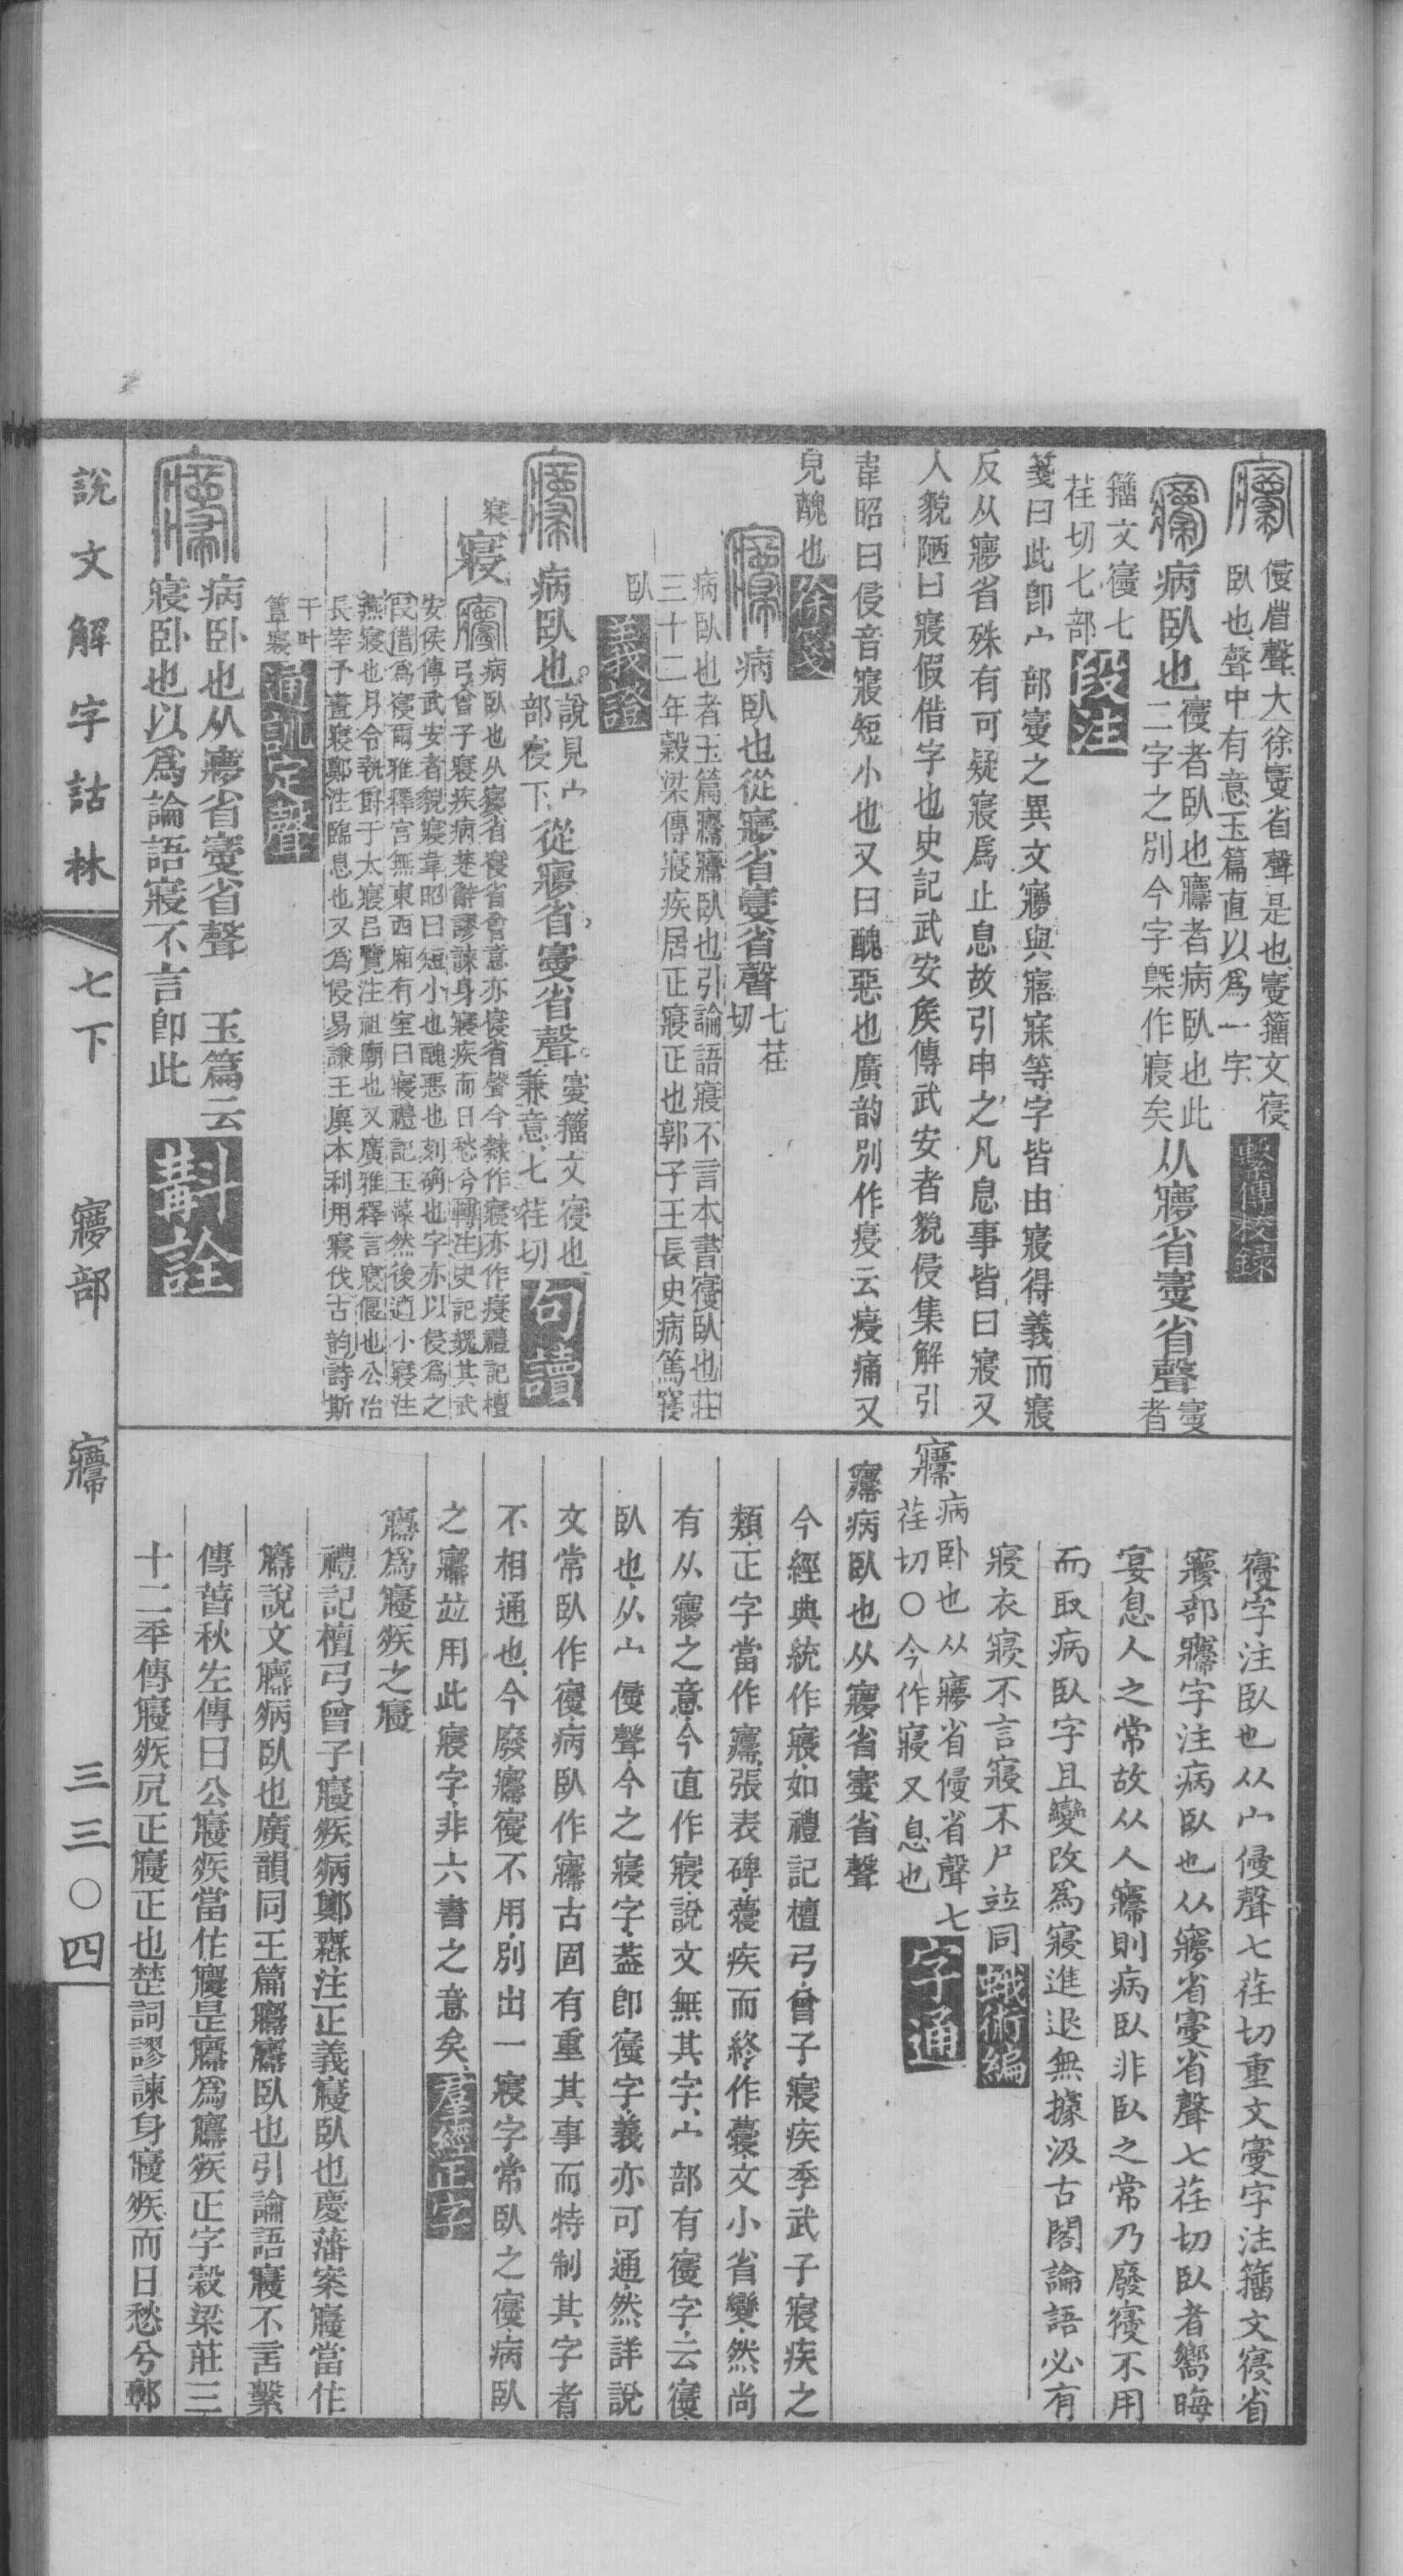 𡪢省聲大徐㝱省聲是也㝱籒文𡪢
臥也聲中有意玉篇直以爲一字
繫傳校錄
病臥也
𡪢者臥也㝲者病臥也此
二字之別今字槩作寢矣
从㝱省𡩠省聲
𡩠者
籒文𡪢七
荏切七部
段注
箋曰此卽宀部𡩠之異文㝱與寤寐等字皆由寢得義而寢
反从㝱省殊有可疑寢爲止息故引申之凡息事皆曰寢又
人貌陋曰寢假借字也史記武安侯傳武安者貌侵集解引
韋昭曰侵音寢短小也又曰醜惡也廣韵別作㾛云㾛痛又
皃醜也
徐箋
病臥也從㝱省𡩠省聲
七荏
切
病臥也者玉篇㝲㝲臥也引論語寢不言本書𡪢臥也莊
三十二年穀梁傳寢疾居正寢正也郭子王長史病篤寢
臥
義證
病臥也
說見宀
部𡪢下
從㝱省𡩠省聲
𡩠籒文𡪢也
兼意七荏切
句讀
寢
病臥也从㝱省𡪢省會意亦𡪢省聲今隸作寢亦作㾛禮記檀
弓曾子寢疾病楚辭謬諫身寢疾而日愁兮轉注史記魏其武
安侯傳武安者貌寢韋昭曰短小也醜惡也刻确也字亦以侵爲之
叚借爲𡪢爾雅釋宮無東西廂有室曰寢禮記玉藻然後適小寢注
燕寢也月令執爵于太寢呂覽注祖廟也又廣雅釋言寢偃也公冶
長宰予晝寢鄭注臨息也又爲侵易謙王廙本利用寢伐古韵詩斯
干叶
簟寢
通訓定聲
病臥也从㝱省𡩠省聲　玉篇云
寢臥也以爲論語寢不言卽此
斠詮
𡪢字注臥也从宀侵聲七荏切重文𡩠字注籒文𡪢省
㝱部㝲字注病臥也从㝱省𡩠省聲七荏切臥者嚮晦
宴息人之常故从人㝲則病臥非臥之常乃廢𡪢不用
而取病臥字且變改爲寢進退無據汲古閣論語必有
寢衣寢不言寢不尸竝同
蛾術編
病臥也从㝱省侵省聲七
荏切〇今作寢又息也
字通
㝲病臥也从㝱省𡩠省聲
今經典統作寢如禮記檀弓曾子寢疾季武子寢疾之
類正字當作㝲張表碑寢疾而終作寢文小省變然尚
有从㝱之意今直作寢說文無其字宀部有𡪢字云𡪢
臥也从宀侵聲今之寢字葢卽𡪢字義亦可通然詳說
文常臥作𡪢病臥作㝲古固有重其事而特制其字者
不相通也今廢㝲𡪢不用別出一寢字常臥之𡪢病臥
之㝲竝用此寢字非六書之意矣
羣經正字
㝲爲寢疾之寢
禮記檀弓曾子寢疾病鄭𤣥注正義寢臥也慶藩案寢當作
㝲說文㝲病臥也廣韻同玉篇㝲㝲臥也引論語寢不言繫
傳萅秋左傳曰公寢疾當作寢是㝲爲㝲疾正字穀梁莊三
十二年傳寢疾凥正寢正也楚詞謬諫身寢疾而日愁兮鄭
說文解字詁林
七下
㝱部
㝲
三三〇四